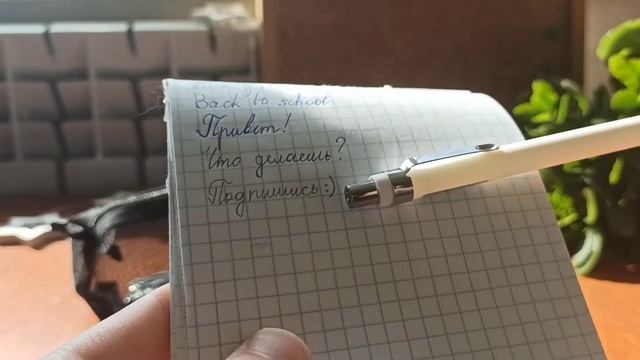 Back to school
Привет!
Что делаешь?
Подпишись:)